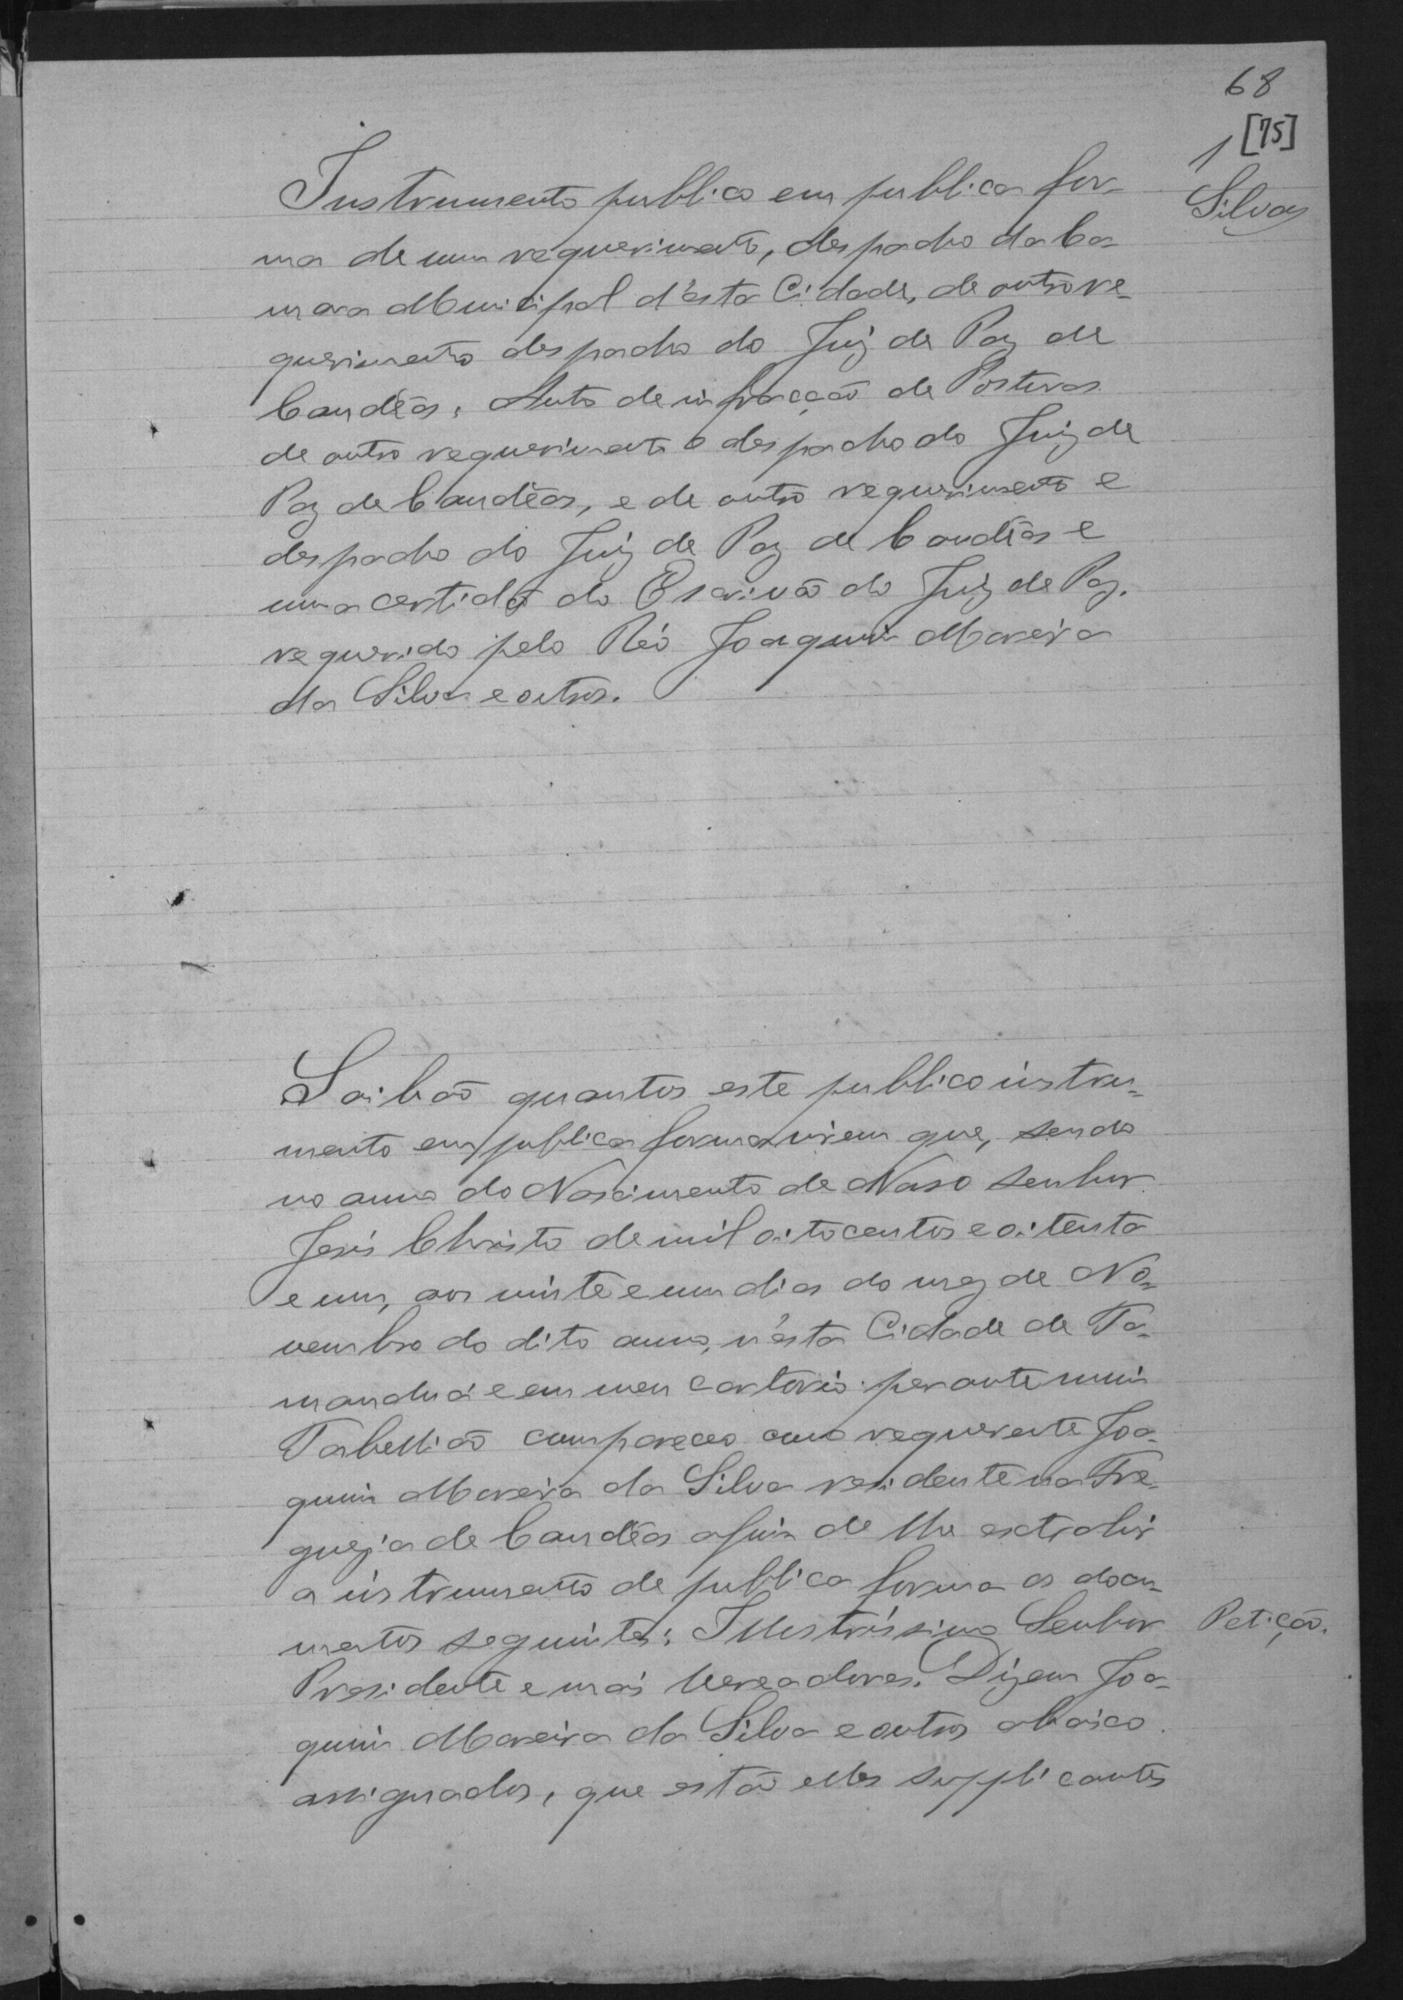 68
[75]
1
Silva
Instrumento publico em publica for-
ma de um requerimento, despacho da Ca-
mara Municipal d'esta Cidade, de outro re-
querimento despacho do Juiz de Paz de
Candêas, Auto de infracção de Posturas
de outro requerimento e despacho do Juiz de
Paz de Candêas, e de outro requerimento e
despacho do Juiz de Paz de Candêas e
uma certidão do Escrivão do Juiz de Paz.
requerido pelo Réo Joaquim Moreira
da Silva e outros.
Saibão quantos este publico instru-
mento em publica forma virem que, sendo
no anno do Nascimento de Nosso Senhor
Jesus Christo de mil oitocentos e oitenta
e um, aos vinte e um dias do mez de No-
vembro do dito anno, n'esta Cidade de Ta-
manduá e em meu cartorio perante mim
Tabellião compareceo como requerente Joa-
quim Moreira da Silva residente na Fre-
guezia de Candêas afim de lhe extrahir
a instrumento de publica forma os docu-
mentos seguintes: Illustrissimo Senhor
Petição.
Presidente e mais Vereadores. Dizem Joa-
quim Moreira da Silva e outros abaixo
assignados, que estão elles supplicantes